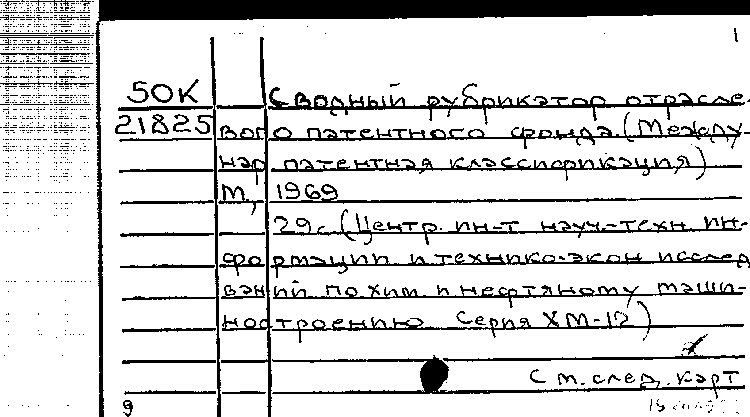 1
50К
21825
Сводный рубрикатор отрасле-
вого патентного фонда. (Между-
нар патентная классификация)
М, 1969
29с. (Центр. ин-т науч-техн. ин-
формации и технико-экон исслед
ваний по хим. и нефтяному маши-
ностроению. Серия ХМ-12)
См. след. карт
9